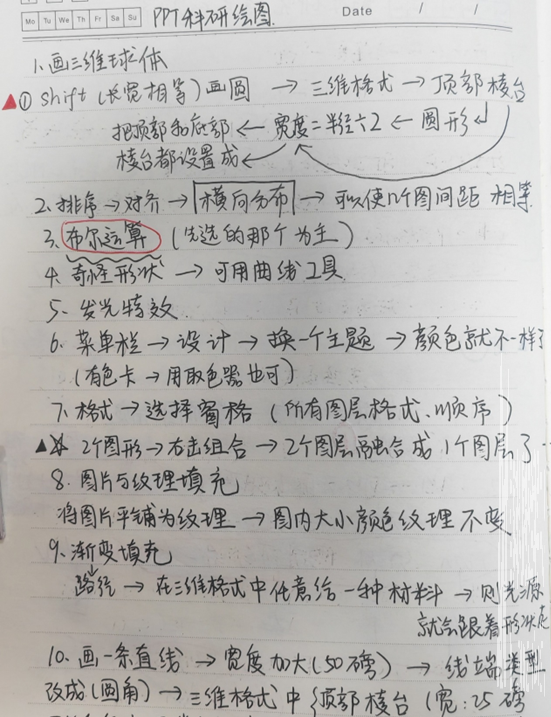 Mo Tu We Th Fr Sa Su PPT科研绘图 Date / /
1.画三维球体
▲① shift(长宽相等)画圆 → 三维格式 → 顶部棱台
把顶部和底部 ← 宽度=半径六2 ← 圆形
棱台都设置成
2.排序→对齐→横向分布→可以使几个图间距相等
3.布尔运算(先选的那个为主)
4.奇怪形状→可用曲线工具
5.发光特效
6.菜单栏→设计→换一个主题→颜色就不一样了
(有色卡→用取色器也可)
7.格式→选择窗格(所有图层格式、顺序)
▲☆ 2个图形→右击组合→2个图层融合成1个图层了
8.图片与纹理填充
将图片平铺为纹理→图内大小颜色纹理不变
9.渐变填充
路径→在三维格式中任意给一种材料→则光源
就会跟着形状走
10.画一条直线→宽度加大(50磅)→线端类型
改成(圆角)→三维格式中{顶部棱台(宽:25磅